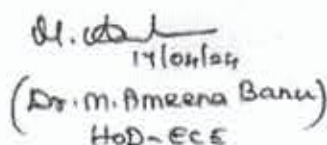 17/04/24
(Dr. M. Ameena Banu)
HoD-ECE